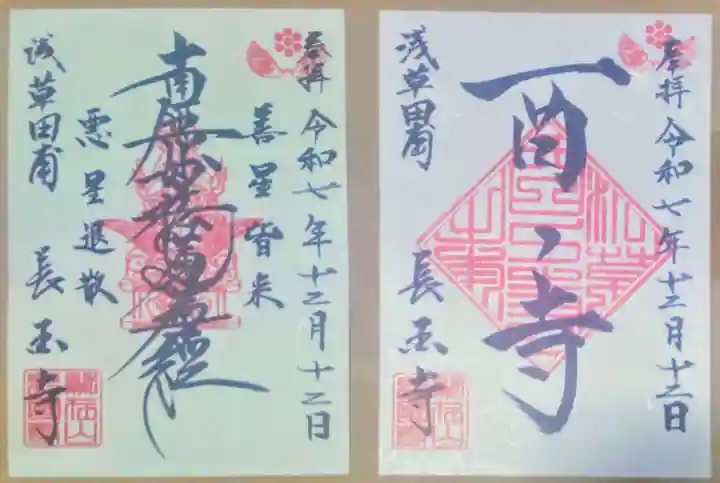 奉拝 令和七年十二月十二日
善星皆来
南無妙法蓮華経
悪星退散
浅草田甫 長国寺
奉拝 令和七年十二月十二日
酉之寺
浅草田甫 長国寺